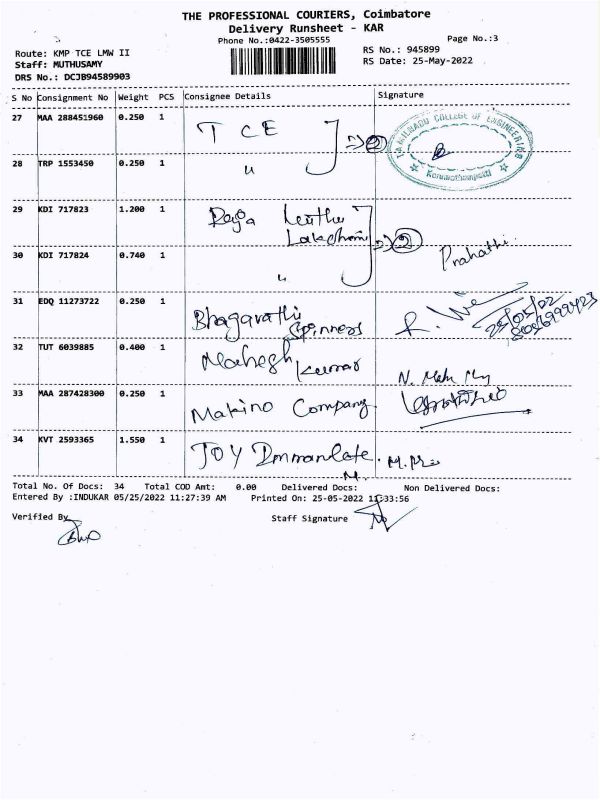 THE PROFESSIONAL COURIERS, Coimbatore
Delivery Runsheet - KAR
Phone No.:0422-3505555
Page No.:3
Route: KMP TCE LMW II
RS No.: 945899
Staff: MUTHUSAMY
RS Date: 25-May-2022
DRS No.: DCJB94589903
S No Consignment No Weight PCS Consignee Details Signature
27 MAA 288451960 0.250 1 TCE 2
TAMILNADU COLLEGE OF ENGINEERING
Karumathampatti
28 TRP 1553450 0.250 1 "
29 KDI 717823 1.200 1 Raja
Lakshmi 2
30 KDI 717824 0.740 1 " Prahathi
31 EDQ 11273722 0.250 1 Bhagavathi
Spinners
32 TUT 6039885 0.400 1 Mahesh
Kumar
33 MAA 287428300 0.250 1 Makino Company.
34 KVT 2593365 1.550 1 JOY
Total No. Of Docs: 34 Total COD Amt: 0.00 Delivered Docs: Non Delivered Docs:
Entered By :INDUKAR 05/25/2022 11:27:39 AM Printed On: 25-05-2022 11:33:56
Verified By
Staff Signature